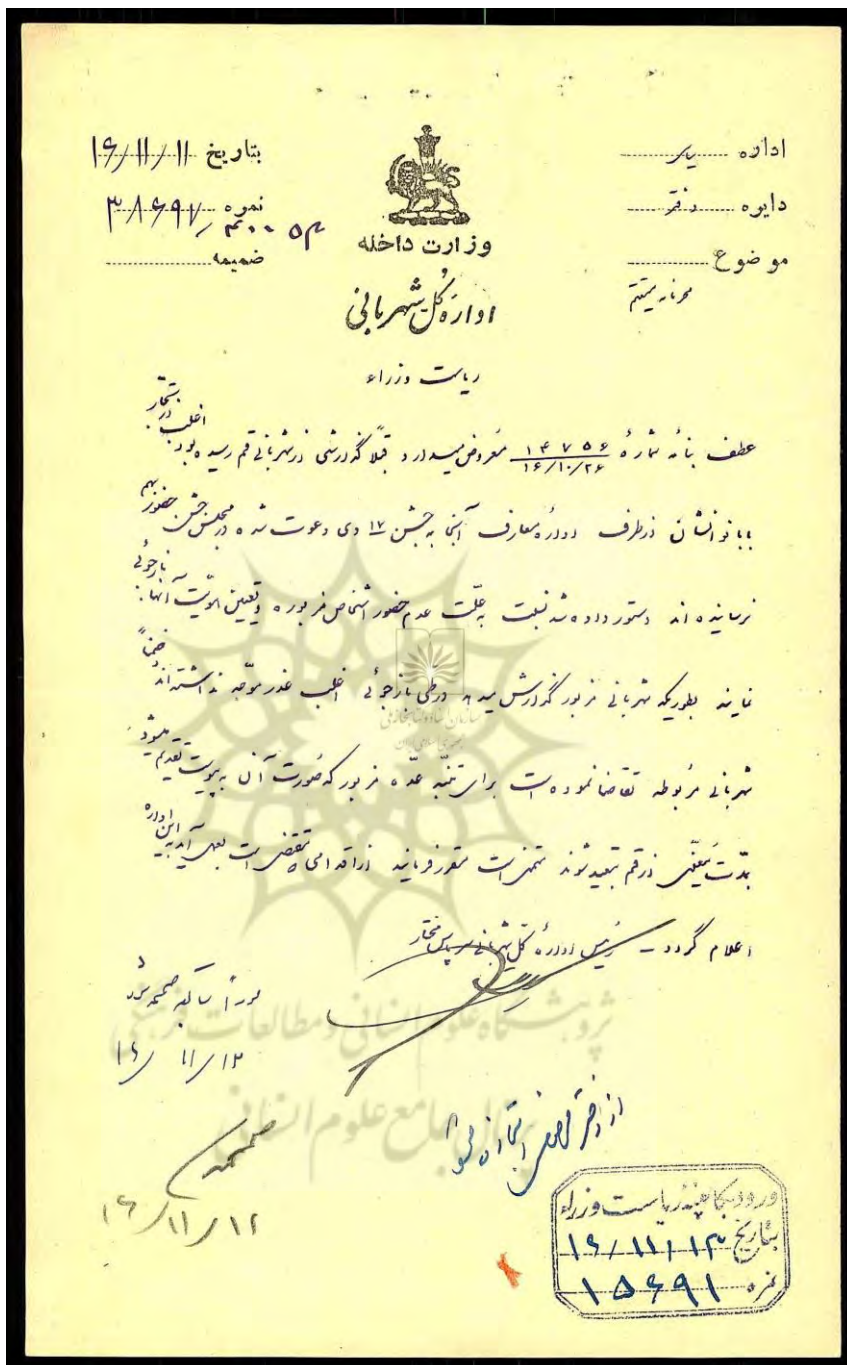 اداره
دایره دفتر
موضوع
محرمانه مستقیم
وزارت داخله
اداره کل شهربانی
بتاریخ ۱۶/۱۱/۱۱
نمره ۳۸۶۹۷
ضمیمه
ریاست وزراء
عطف بنامهٔ شمارهٔ ۱۴۷۵۶ ۱۶/۱۰/۲۶ معروض میدارد قبلاً گذارشی از شهربانی قم رسیده بود
بابانوانشان از طرف اداره معارف آنجا به جشن ۱۷ دی دعوت شده در مجلس جشن حضور بهم
نرسانیده اند دستور داده شد نسبت به علت عدم حضور اشخاص مزبوره و تعیین هویت آنها بازجوئی
نمایند بطوریکه شهربانی مزبور گذارش میدهد در طی بازجوئی اغلب عذر موجه نداشته اند ضمناً
شهربانی مربوطه تقاضا نموده است برای تنبه عده مزبور که صورت آن به پیوست تقدیم میشود
بمدت معینی از قم تبعید شوند متمنی است مقرر فرمایند از اقدامی که مقتضی است بعمل آید به این اداره
اعلام گردد - رئیس اداره کل شهربانی سرپاس مختار
فوراً سابقه ضمیمه شود
۱۶/۱۱/۱۳
از دفتر
ضمیمه شد
۱۶/۱۱/۱۲
ورود بکابینه ریاست وزراء
بتاریخ ۱۶/۱۱/۱۳
نمره ۱۵۶۹۱
سازمان اسناد و کتابخانه ملی
جمهوری اسلامی ایران
پژوهشگاه علوم انسانی و مطالعات فرهنگی
پرتال جامع علوم انسانی